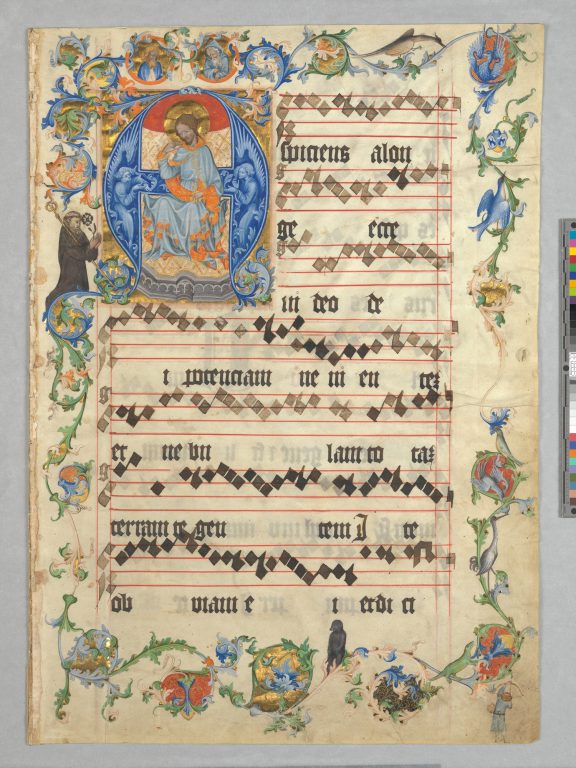 A
spiciens a lon
ge ecce
ui deo de
i potenciam ue ni en tez
et ne bu lam to taz
terram te gen tem I te
ob uiam e i et di ci